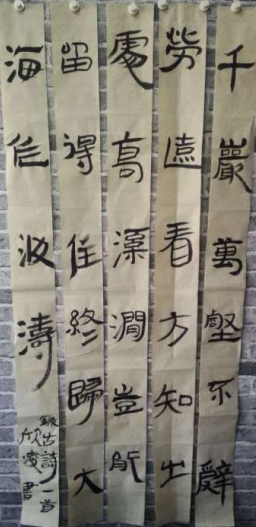 千巖萬壑不辭
勞遠看方知出
處高溪澗豈能
留得住終歸大
海作波濤
錄古詩一首
欣凌書